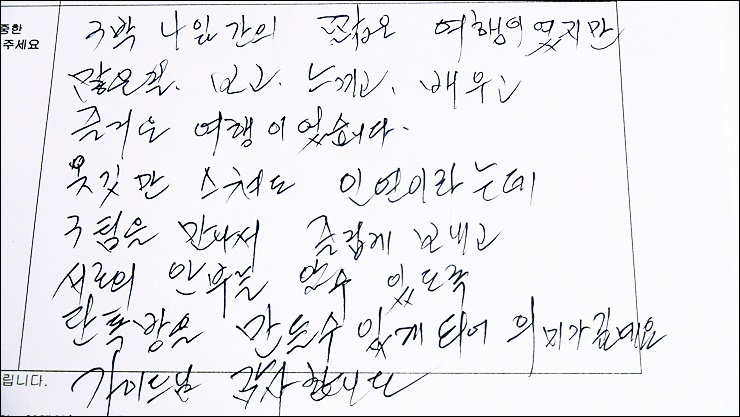 중한
주세요
3박 4일간의 짧은 여행이였지만
많은걸. 보고. 느끼고. 배우고
즐거운 여행이었습니다.
옷깃만 스쳐도 인연이라는데
3팀을 만나서 즐겁게 보내고
서로의 안부를 알수 있도록
단톡방을 만들수 있게 되어 의미가 깊네요
립니다.
가이드님 감사합니다